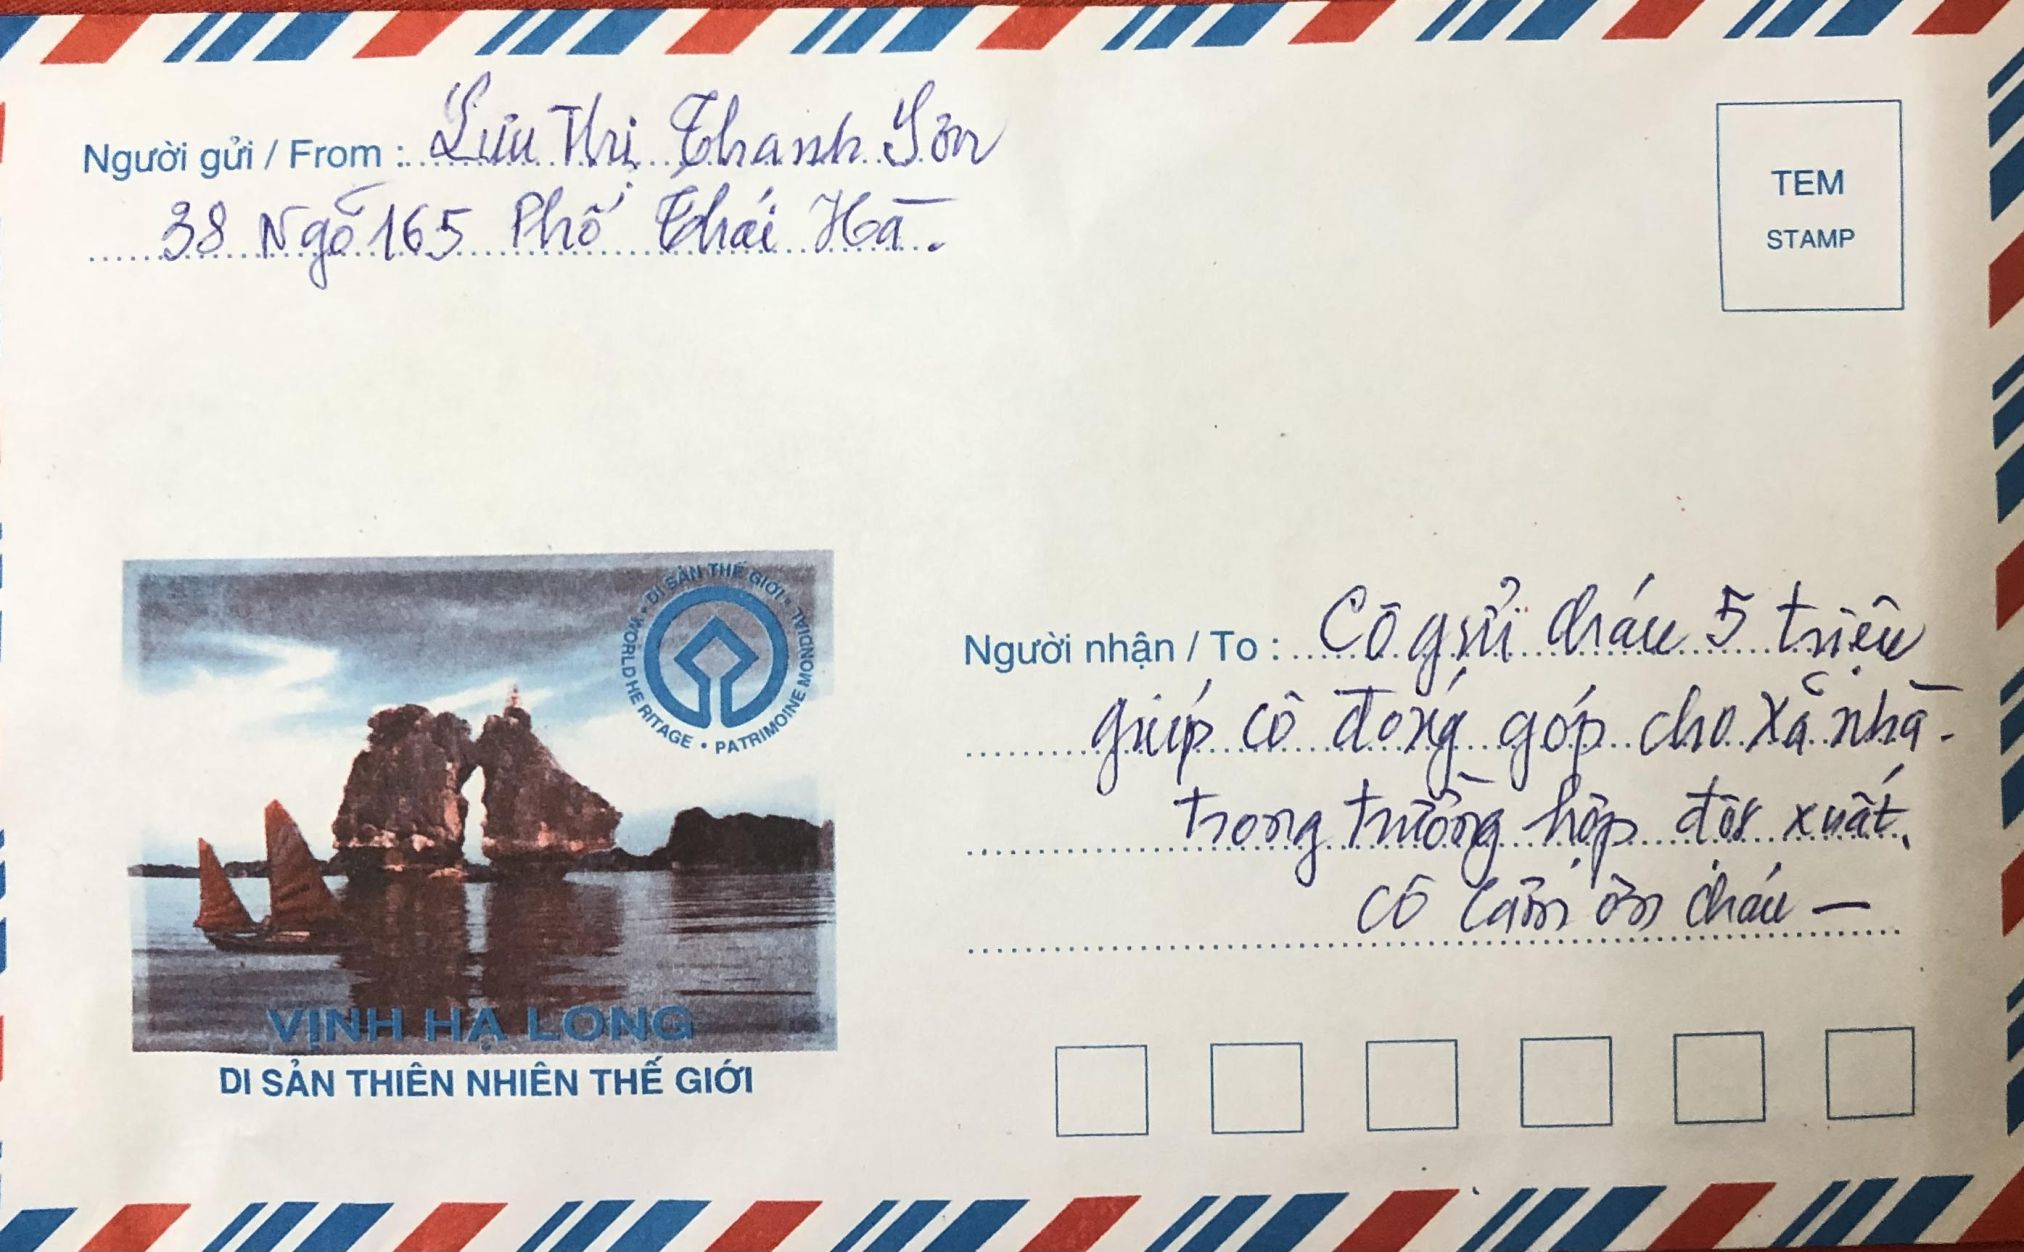 Người gửi / From : Lưu Thị Thanh Sơn
38 Ngõ 165 Phố Thái Hà.
TEM
STAMP
DI SẢN THẾ GIỚI • PATRIMOINE MONDIAL • WORLD HERITAGE
VỊNH HẠ LONG
DI SẢN THIÊN NHIÊN THẾ GIỚI
Người nhận / To : Cô gửi cháu 5 triệu
giúp cô đóng góp cho xã nhà.
trong trường hợp đột xuất.
cô cảm ơn cháu –